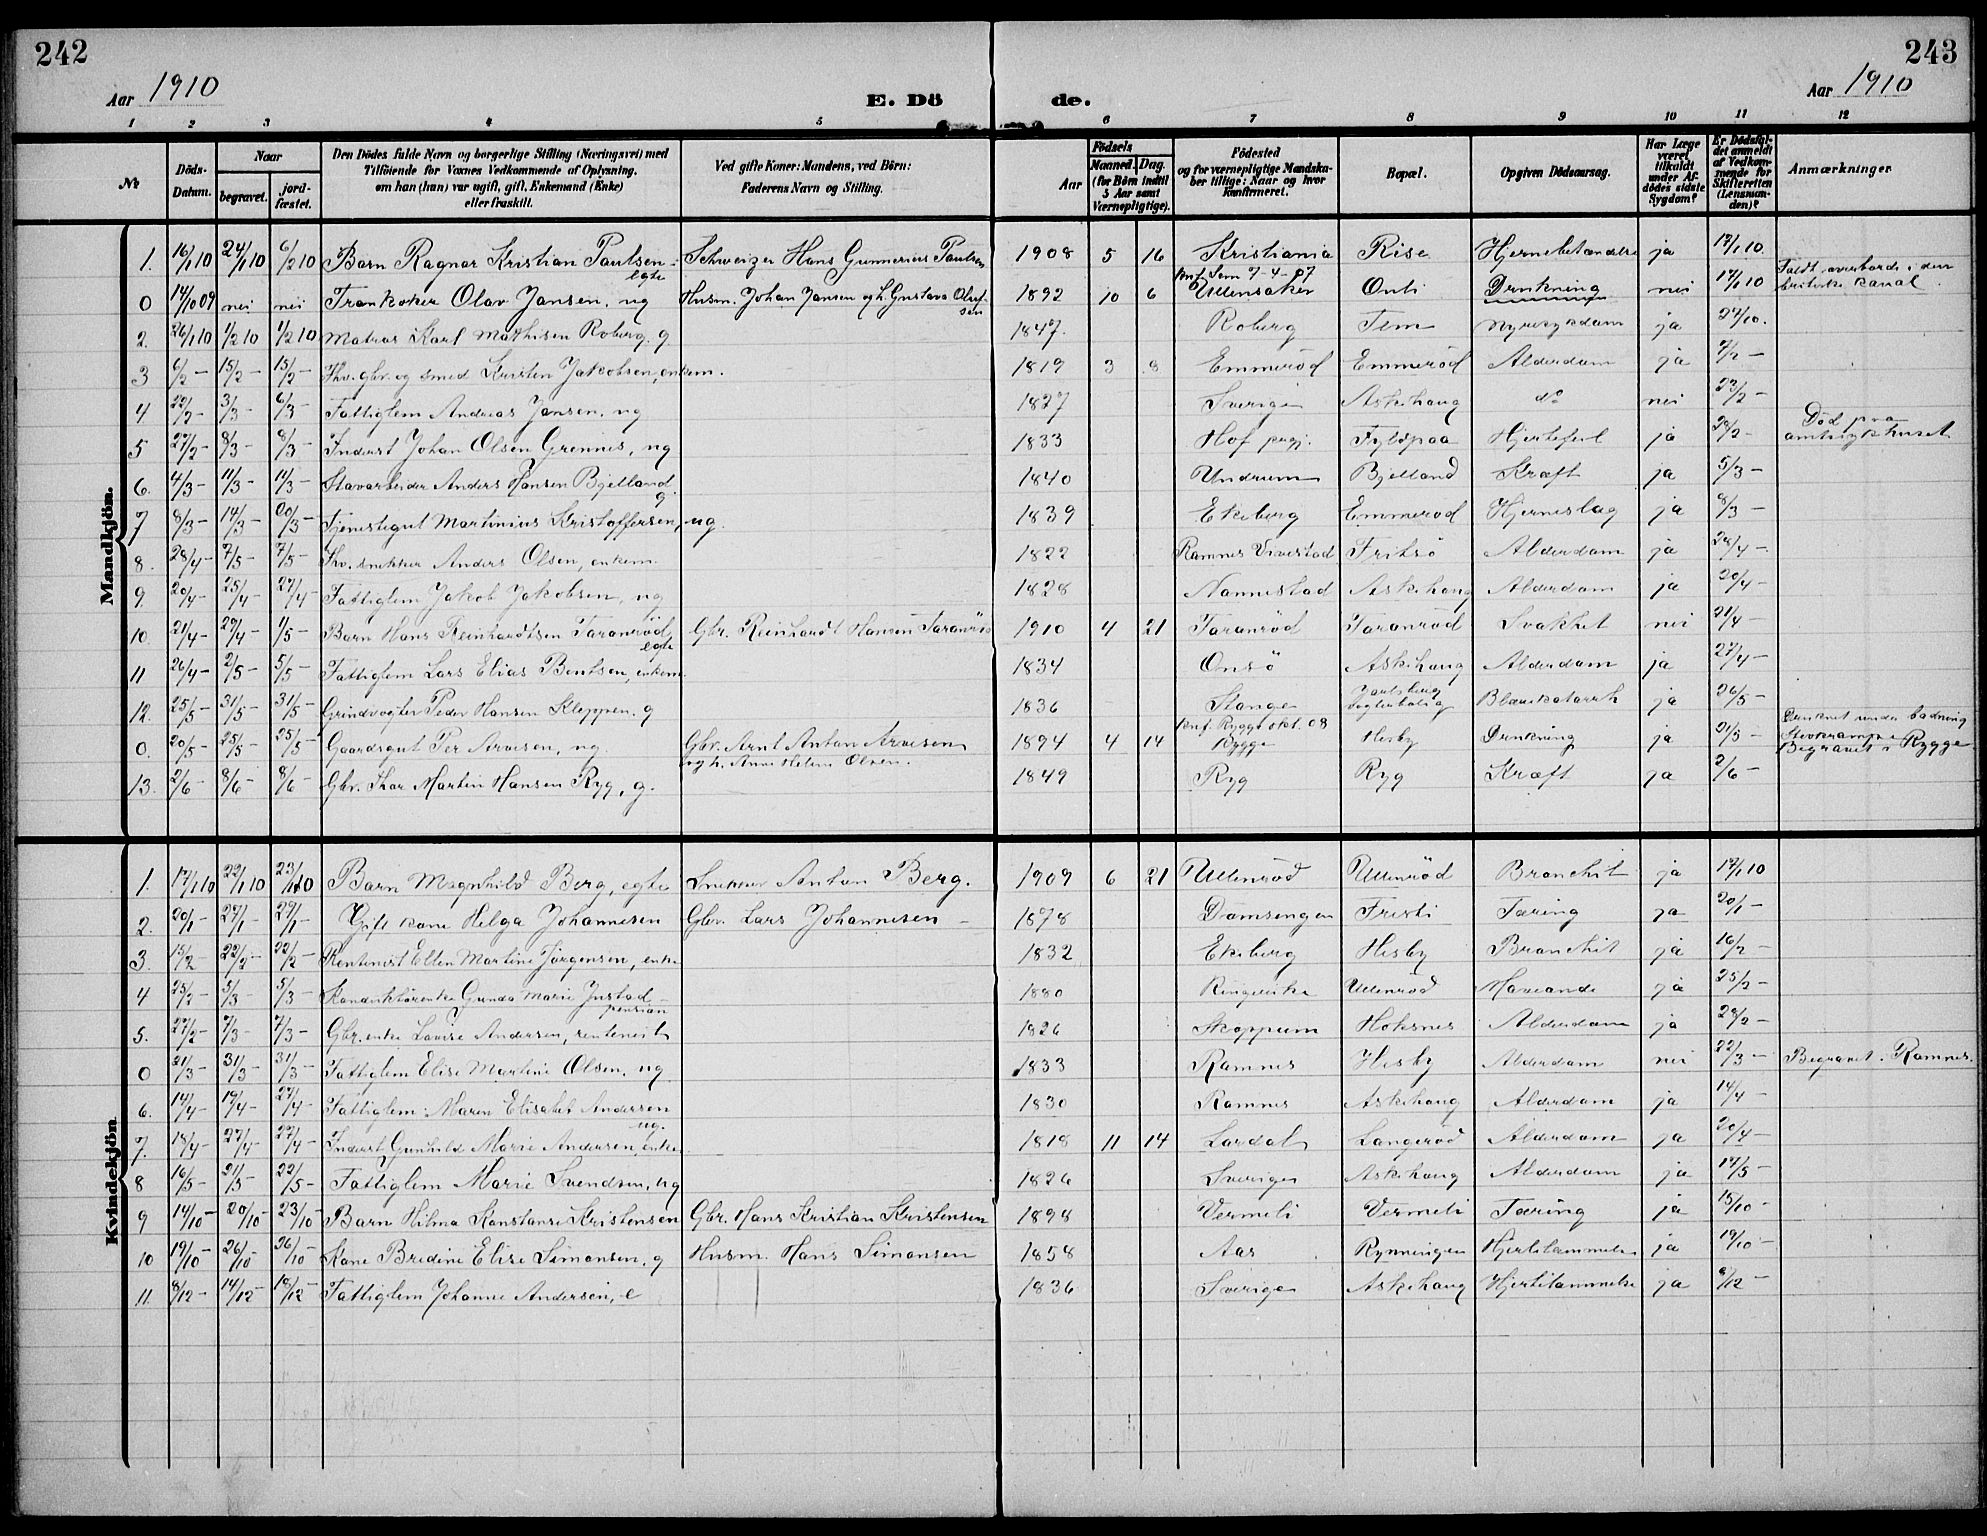 242
243
Aar 1910
E. Dö
de.
Aar 1910
1 2 3 4 5 6 7 8 9 10 11 12
№
Döds-Datum.
Naar
begravet.
jord-fæstet.
Den Dödes fulde Navn og borgerlige Stilling (Næringsvei) med
Tilföiende for Voxnes Vedkommende af Oplysning,
om han (hun) var ugift, gift, Enkemand (Enke)
eller fraskilt.
Ved gifte Koner: Mandens, ved Börn:
Faderens Navn og Stilling.
Födsels
Aar
Maaned. Dag.
(for Börn indtil
5 Aar samt
Værnepligtige).
Födested
og for værnepligtige Mandska-
ber tillige: Naar og hvor
konfirmeret.
Bopæl.
Opgiven Dödsaarsag.
Har Læge
været
tilkaldt
under Af-
dödes sidste
Sygdom?
Er Dödsfal-
det anmeldt
af Vedkom-
mende for
Skifteretten
(Lensman-
den)?
Anmærkninger
Mandkjön.
1. 16/1 10 24/1 10 6/2 10 Barn Ragnar Kristian Paulsen - egte Schweizer Hans Gunnerius Paulsen 1908 5 16 Kristiania Rise Hjernebetændelse ja 17/1 10
0 14/10 09 nei nei Olav Jansen, ug Husm. Johan Jansen og h. Gustava Olufsen 1892 10 6 knf. Sem 7-4-07 Ullensaker Onli Drukning nei 17/1 10 Faldt overbord i den britiske kanal.
2. 26/1 10 1/2 10 1/2 10 Matros Karl Mathisen Roberg. g 1847. Roberg Tem Nyresygdom ja 27/10.
3 6/2 - 15/2 - 15/2 - Fhv. gbr. og smed Kristen Jakobsen, enkem. 1819 3 8 Emmeröd Emmeröd Alderdom ja 7/2 -
4 22/2 - 3/3 - 6/3 - Fattiglem Andreas Jansen, ug 1827 Sverige Askehaug do nei 23/2 -
5 27/2 - 8/3 - 8/3 - Inderst Johan Olsen Grennes, ug 1833 Hof prgj. Fyldpaa Hjertefeil ja 28/2 - Död paa amtssykhuset
6. 4/3 - 11/3 - 11/3 - Anders Hansen Bjelland g. 1840 Undrum Bjelland Kræft ja 5/3 -
7 8/3 - 14/3 - 20/3 - Tjenestegut Martinius Kristoffersen, ug. 1839 Ekeberg Emmeröd Hjerneslag ja 8/3 -
8. 28/4 - 7/5 - 7/5 - Fhv. snekker Anders Olsen, enkem. 1822 Ramnes Vivestad Fritsö Alderdom ja 28/4 -
9. 20/4 - 25/4 - 27/4 - Fattiglem Jakob Jakobsen, ug 1828 Nannestad Askehaug Alderdom ja 20/4 -
10. 21/4 - 29/4 - 1/5 - Barn Hans Reinhardtsen Taranröd, egte Gbr. Reinhardt Hansen Taranröd 1910 4 21 Taranröd Taranröd Svakhet nei 21/4 -
11 26/4 - 2/5 - 5/5 - Fattiglem Lars Elias Bentsen, enkem. 1834 Onsö Askehaug Alderdom ja 27/4 -
12. 25/5 - 31/5 - 31/5 - Grindvogter Peder Hansen Kleppen. g 1836 Stange Jarlsberg vogterbolig Blærekatarrh ja 26/5 -
0. 20/5 - 25/5 - 25/5 - Gaardsgut Per Arvesen, ug. Gbr. Arnt Anton Arvesen og h. Anne Helene Olsen. 1894 4 14 knf. Rygge okt. 08 Rygge Hesby Drukning ja 21/5 - Druknet under badning Begravet i Rygge
13. 2/6 - 8/6 - 8/6 - Gbr. Thor Martin Hansen Ryg, g. 1849 Ryg Ryg Kræft ja 2/6 -
Kvindekjön
1. 17/1 10 22/1 10 23/1 10 Barn Magnhild Berg, egte Snekker Anton Berg. 1909 6 21 Ullenröd Ullenröd Bronchit ja 17/1 10
2. 20/1 - 27/1 - 29/1 - Gift kone Helga Johannesen Gbr. Lars Johannesen - 1878 Damsengen Fresti Tæring ja 20/1 -
3. 15/2 - 22/2 - 22/2 - Rentenist Ellen Martine Jörgensen, enke 1832 Ekeberg Hesby Bronchit ja 16/2 -
4 25/2 - 5/3 - 5/3 - Konduktörenke Gunda Marie Justad - pension 1880 Ringerike Ullenröd Maveonde ja 25/2 -
5. 27/2 - 7/3 - 7/3 - Gbr. enke Lovise Andersen, rentenist 1826 Skoppum Hoksnes Alderdom ja 28/2 -
0 21/3 - 31/3 - 31/3 - Fattiglem Elise Martine Olsen, ug 1833 Ramnes Hesby Alderdom nei 22/3 - Begravet i Ramnes.
6. 14/4 - 19/4 - 27/4 - Fattiglem Maren Elisabet Andersen ug. 1830 Ramnes Askehaug Alderdom ja 14/4 -
7. 18/4 - 27/4 - 27/4 - Inderst Gunhild Marie Andersen, enke. 1818 11 14 Lardal Langeröd Alderdom ja 20/4 -
8 16/5 - 21/5 - 22/5 - Fattiglem Marie Svendsen, ug 1826 Sverige Askehaug Alderdom ja 17/5 -
9 14/10 - 20/10 - 23/10 - Barn Hilma Konstanse Kristensen Gbr. Hans Kristian Kristensen 1898 Vermeli Vermeli Tæring ja 15/10 -
10 19/10 - 26/10 - 26/10 - Kone Bredine Elise Simonsen, g Husm. Hans Simonsen 1858 Aas Rynningen Hjertelammelse ja 19/10 -
11. 8/12 - 14/12 - 18/12 - Fattiglem Johanne Andersen, e 1836 Sverige Askehaug Hjertelammelse ja 8/12 -